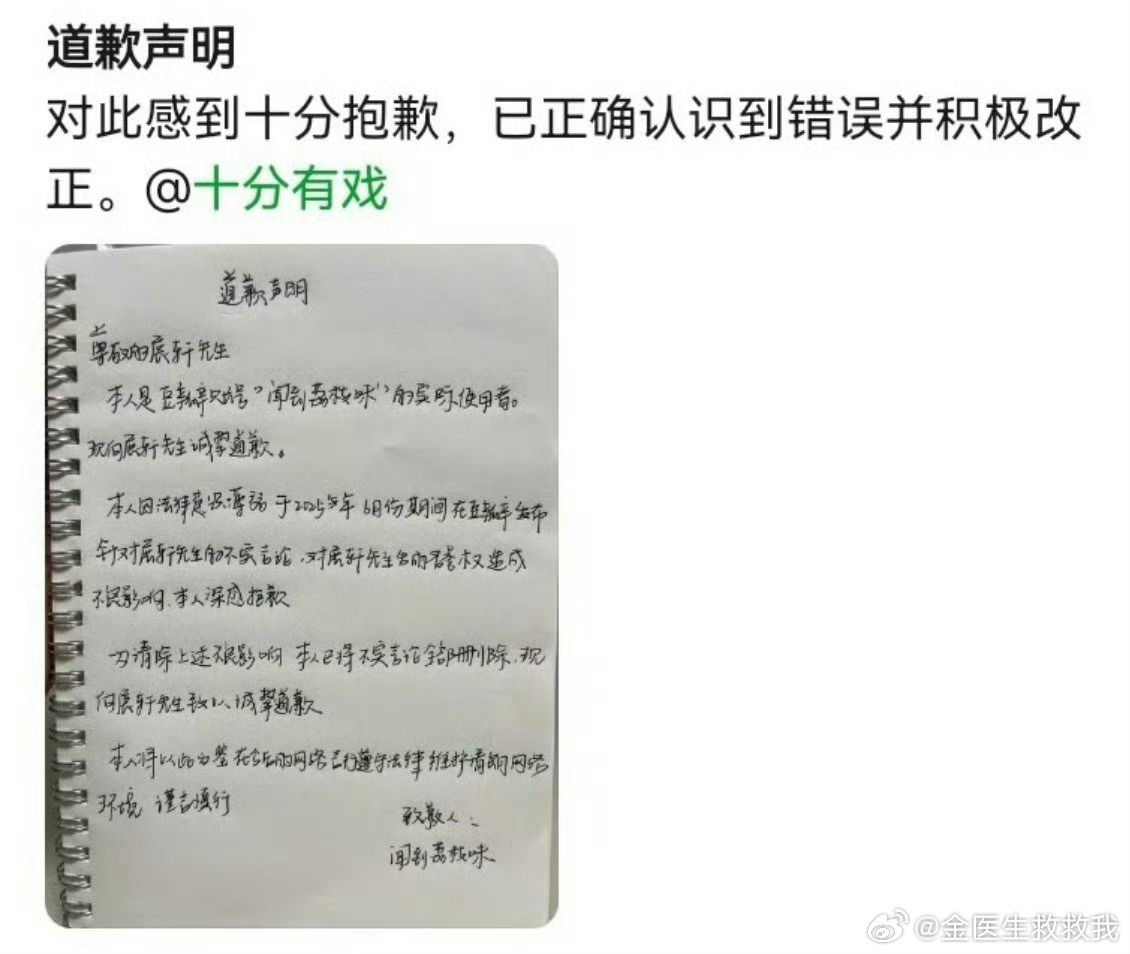 道歉声明
对此感到十分抱歉，已正确认识到错误并积极改
正。@十分有戏
道歉声明
尊敬的展轩先生
本人是豆瓣账号“闻到荔枝味”的实际使用者。
现向展轩先生诚挚道歉。
本人因法律意识薄弱于2025年6月份期间在豆瓣发布
针对展轩先生的不实言论，对展轩先生名誉权造成
不良影响，本人深感抱歉
为清除上述不良影响 本人已将不实言论全部删除，现
向展轩先生致以诚挚道歉
本人将以此为鉴在今后的网络言行遵守法律 维护清朗网络
环境 谨言慎行
致歉人：
闻到荔枝味
@金医生救救我